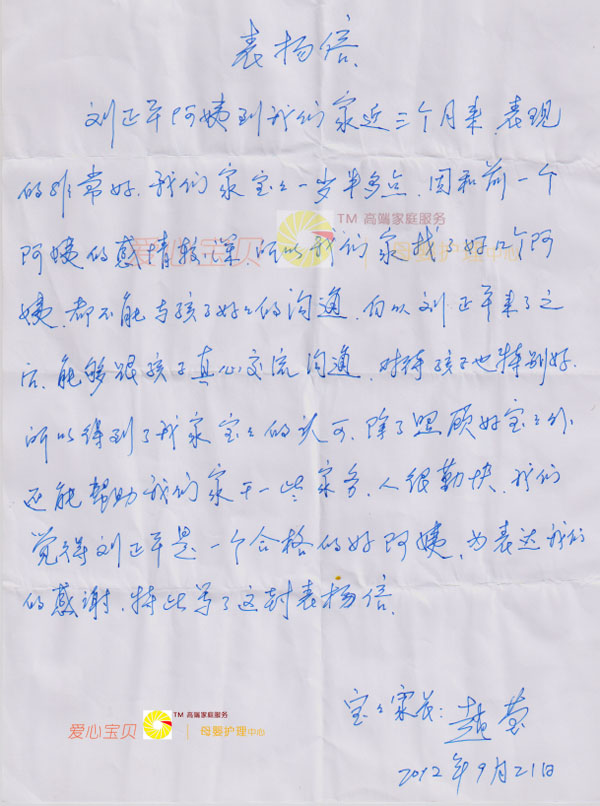 表扬信
刘正军阿姨到我们家近三个月来 表现
的非常好.我们家宝々一岁半多点.因和前一个
TM 高端家庭服务
爱心宝贝 母婴护理中心
阿姨的感情较深.所以我们家找了好几个阿
姨.都不能与孩子好々的沟通.自从刘正军来了之
后.能够跟孩子真心交流沟通.对待孩子也特别好.
所以得到了我家宝々的认可.除了照顾好宝々外
还能帮助我们家干一些家务.人很勤快.我们
觉得刘正军是一个合格的好阿姨.为表达我们
的感谢.特此写了这封表扬信.
宝々家长:赵莹
2012年9月21日
TM 高端家庭服务
爱心宝贝 母婴护理中心